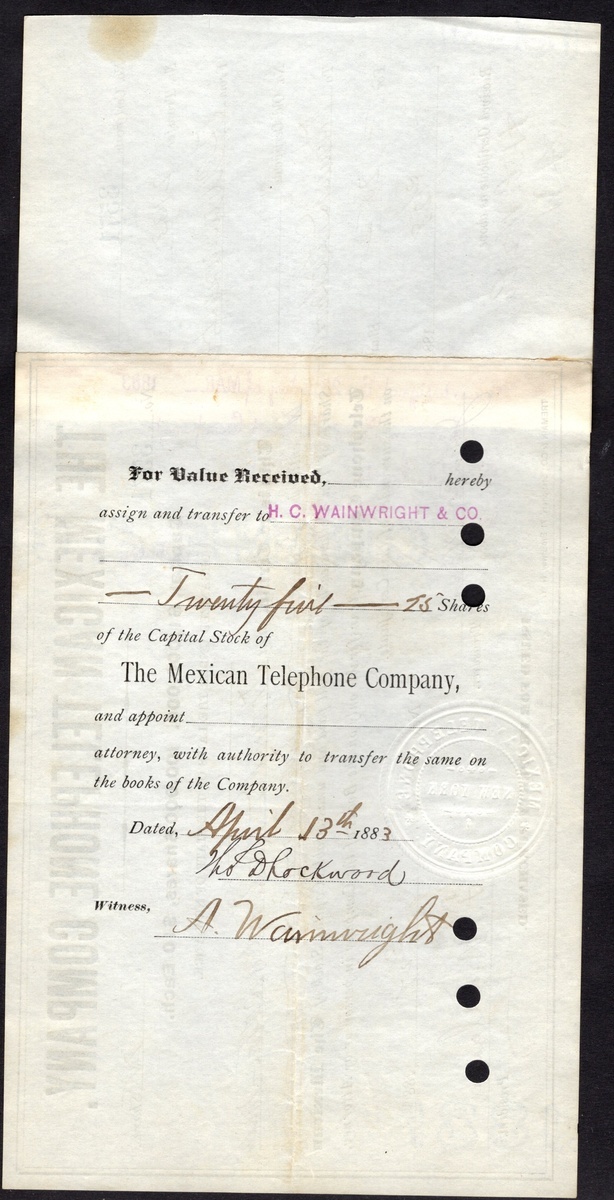 For Value Received, hereby
assign and transfer to H. C. WAINWRIGHT & CO.
— Twenty five — 25 Shares
of the Capital Stock of
The Mexican Telephone Company,
and appoint
attorney, with authority to transfer the same on
the books of the Company.
Dated, April 13th 1883
Thos D Lockwood
Witness,
A. Wainwright
THE MEXICAN TELEPHONE COMPANY.